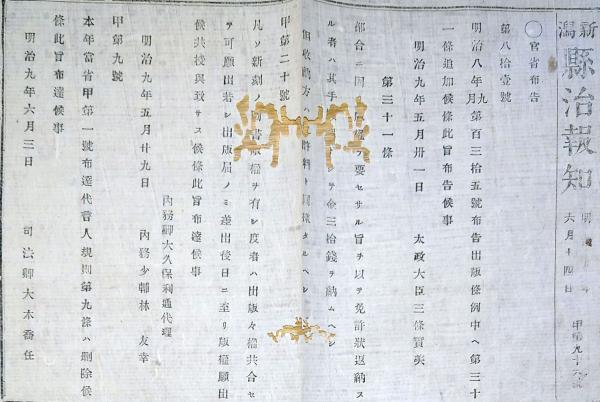 新潟縣治報知
六月十四日
甲第九十六號
◯官省布告
第八拾壹號
明治八年九月第百三拾五號布告出版條例中ヘ第三十
一條追加候條此旨布告候事
明治九年五月卅一日 太政大臣三條實美
第三十一條
部合ニ因リ版權ヲ要セサル旨ヲ以テ免許狀返納ス
ル者ハ其手 金三拾錢ヲ納ムヘシ
但收納方ハ 罰料ト同樣タルヘシ
甲第二十號
凡ソ新刻ノ圖書版權ヲ有シ度者ハ出版々權共合セ
ヲ可願出若シ出版屆ノミ差出後日ニ至リ版權願出
候共授與致サス候條此旨布達候事
內務卿大久保利通代理
明治九年五月廿九日 內務少輔林友幸
甲第九號
本年當省甲第一號布達代言人規則第九條ハ刪除候
條此旨布達候事
明治九年六月三日 司法卿大木喬任